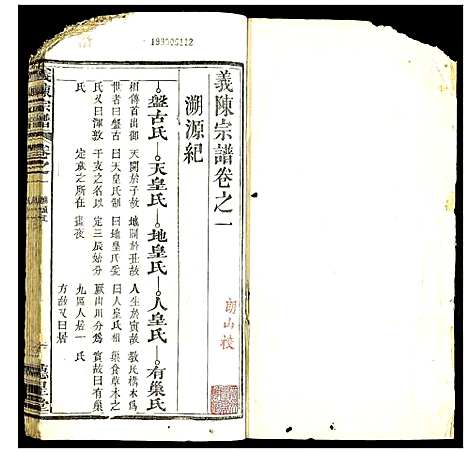 193006112
義陳宗譜卷之一
溯源紀
盤古氏—天皇氏—地皇氏—人皇氏—有巢氏
相傳首出御
世者曰盤古
氏又曰渾敦
氏
天開於子故
曰天皇氏始
干支之名以
定歲之所在
地闢於丑故
曰地皇氏爰
定三辰始分
晝夜
人生於寅故
曰人皇氏相
厥山川分為
九區人居一
方故又曰居
氏
教民構木為
巢食草木之
實故曰有巢
氏
義陳宗譜
卷之一
德星堂